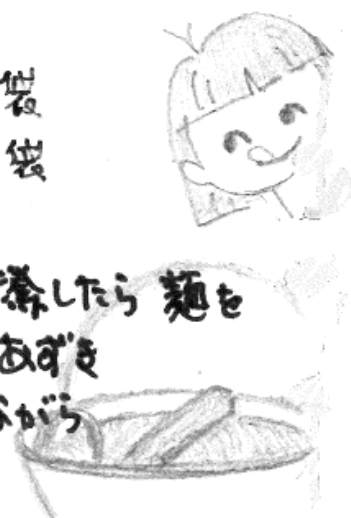 袋
袋
したら 麺を
あずき
ながら